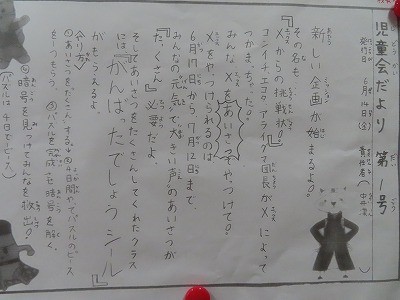 児童会だより 第1号
発行日 6月14日(金) 責任者(
新しい企画が始まるよ。
その名も
『Xからの挑戦状』
コンイチ、エコタ、アライグマ団長がXによって
つかまっちゃった。
みんな、Xをあいさつでやっつけて。
Xをやっつけられるのは
6月17日から7月12日まで。
みんなの元気で大きい声のあいさつが
『たくさん』必要だよ。
そしてあいさつをたくさんしてくれたクラス
には、『がんばったでしょうシール』
がもらえるよ。
やり方
①あいさつをたくさんする。②4日間やってパズルのピース
をもらう。③パズルを完成させ暗号を解く。
④暗号を見つけてみんなを救出
(パズルは4日で1ピース)